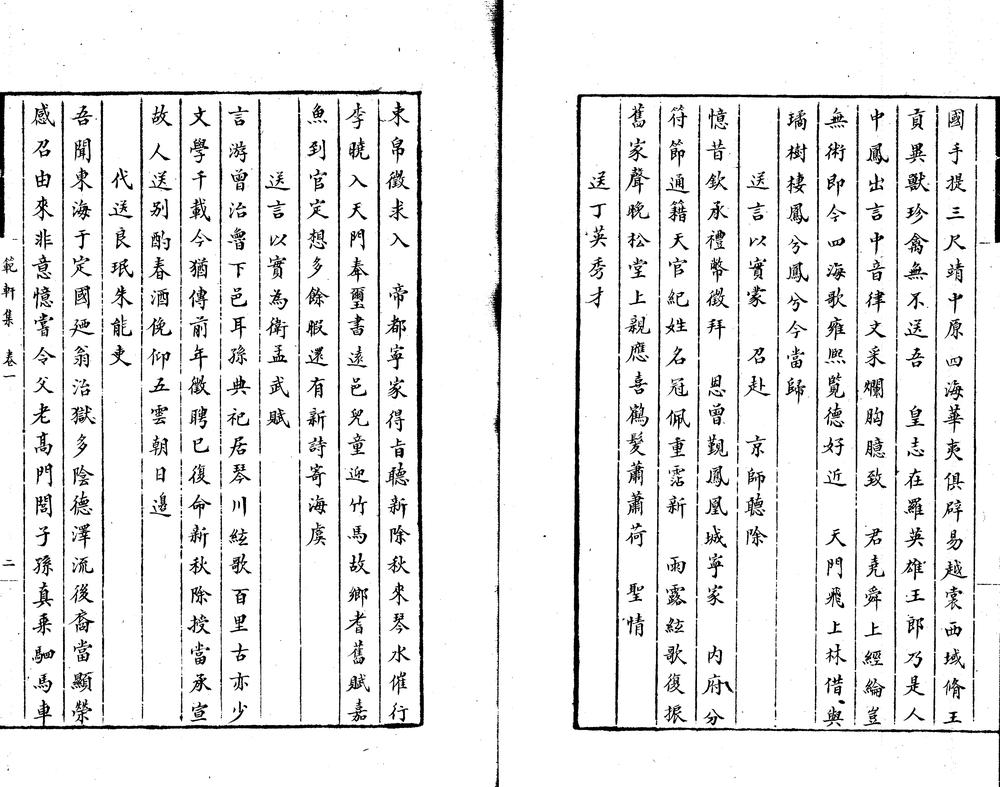 國手提三尺靖中原四海華夷俱辟易越裳西域脩王
貢異獸珍禽無不送吾　皇志在羅英雄王郎乃是人
中鳳出言中音律文采爛胸臆致　君堯舜上經綸豈
無術即今四海歌雍熙覽德好近　天門飛上林借與
璚樹棲鳳兮鳳兮今當歸
送言以實蒙　召赴　京師聽除
憶昔欽承禮幣徵拜　恩曾覲鳳凰城寧家　內府分
符節通籍天官紀姓名冠佩重霑新　雨露絃歌復振
舊家聲晚松堂上親應喜鶴髮蕭蕭荷　聖情
送丁英秀才
束帛徵求入　帝都寧家得旨聽新除秋來琴水催行
李曉入天門奉璽書遠邑兒童迎竹馬故鄉耆舊賦嘉
魚到官定想多餘暇還有新詩寄海虞
送言以實為衛孟武賦
言游曾治魯下邑耳孫典祀居琴川絃歌百里古亦少
文學千載今猶傳前年徵聘已復命新秋除授當承宣
故人送別酌春酒俛仰五雲朝日邊
代送良珉朱能吏
吾聞東海于定國廼翁治獄多陰德澤流後裔當顯榮
感召由來非意憶嘗令父老高門閭子孫真乘駟馬車
範軒集　卷一　二